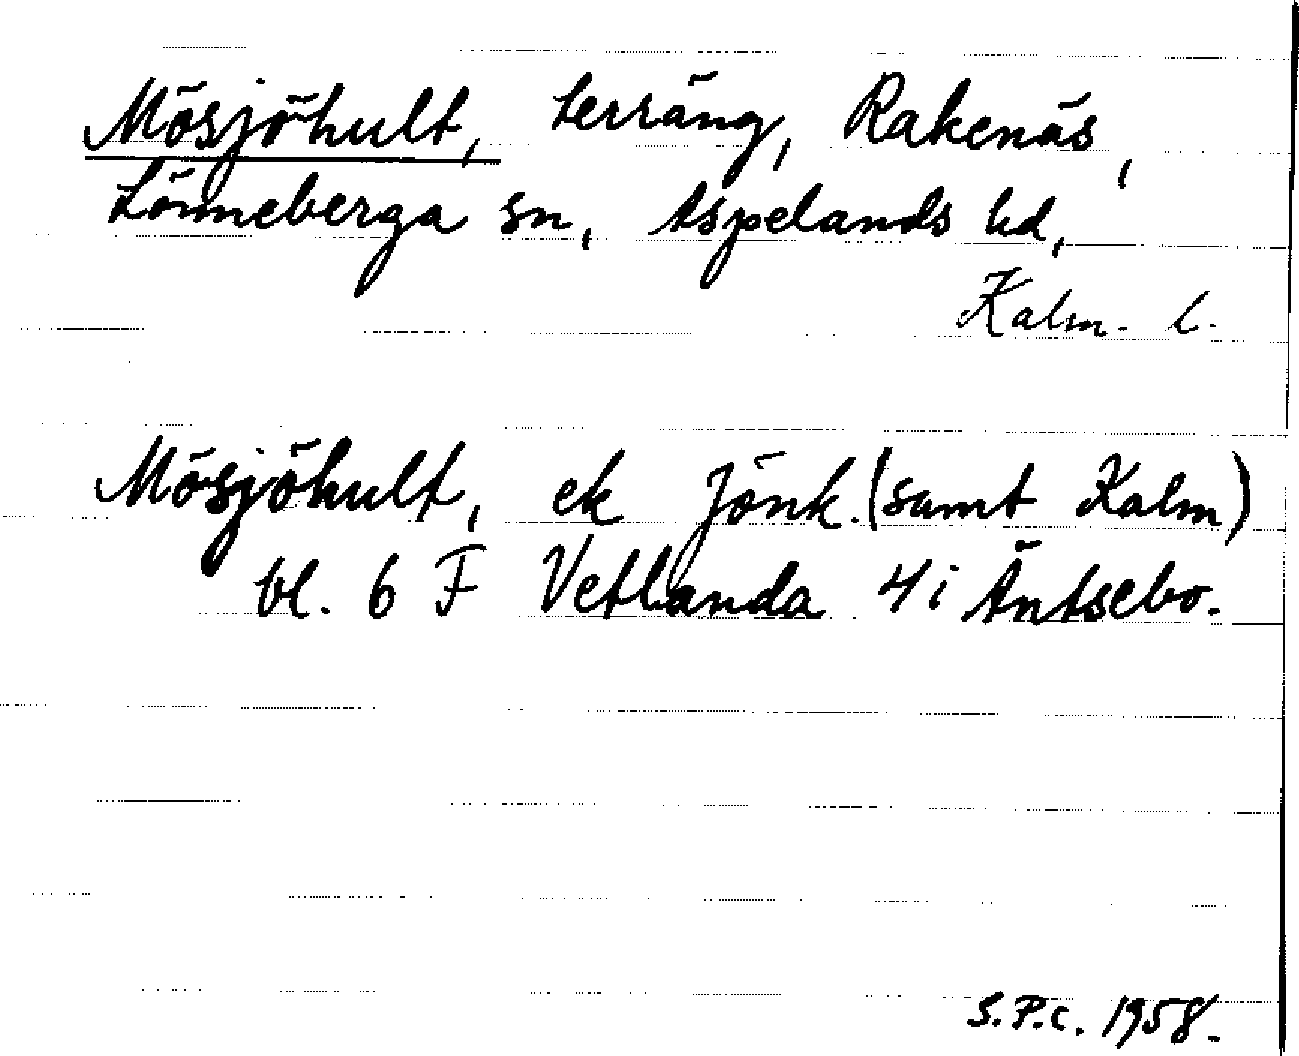 Mösjöhult, terräng, Rakenäs,
Lönneberga sn, Aspelands hd,
Kalm. l.
Mösjöhult, ek Jönk. (samt Kalm)
bl. 6 F Vetlanda 4i Äntsebo.
S.P.C. 1958.